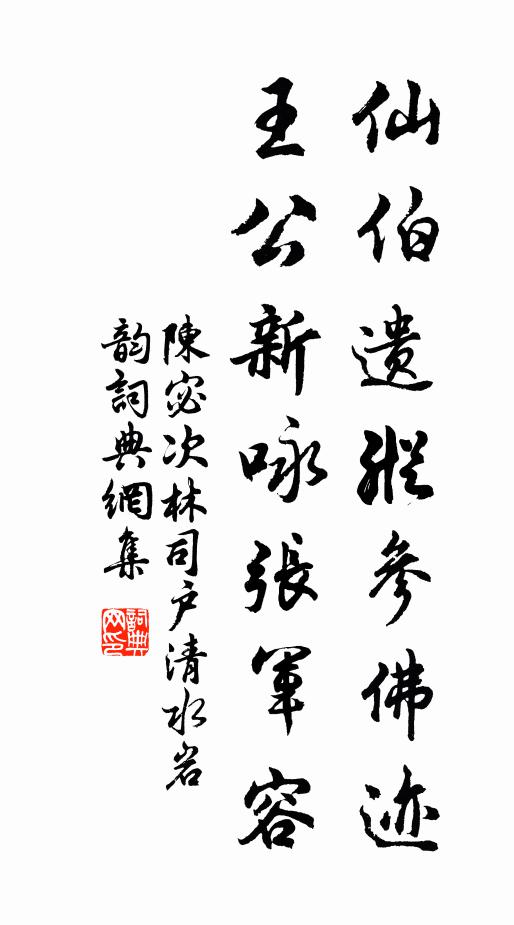 仙伯遺蹤參佛迹
王公新咏張軍容
陳宓次林司户清水岩
韵詞典網集
詞典網印